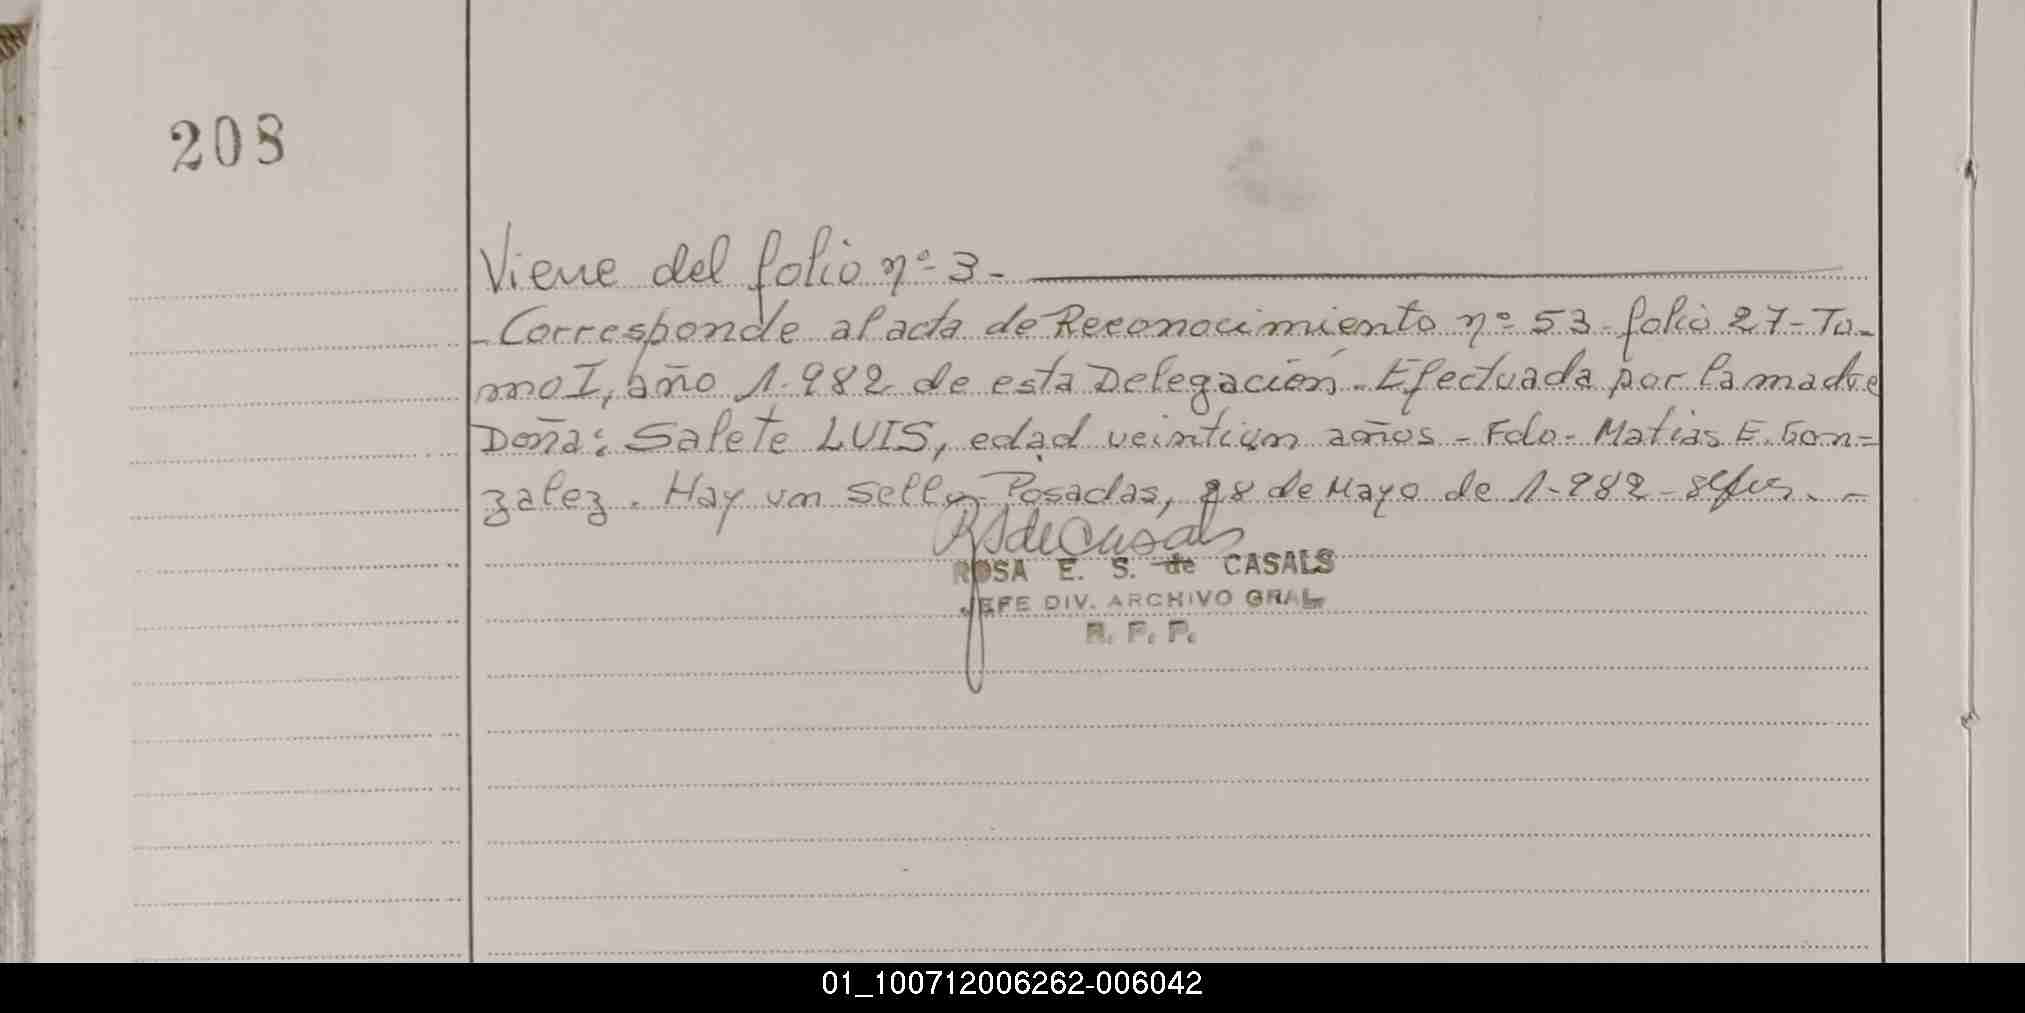 208
Viene del folio nº 3-
-Corresponde al acta de Reconocimiento nº 53-folio 27-To-
mo I, año 1.982 de esta Delegación-Efectuada por la madre
Doña: Salete LUIS, edad veintiun años-Fdo-Matias E. Gon=
zalez. Hay un sello-Posadas, 28 de Mayo de 1-982-
RSdeCasals
ROSA E. S. de CASALS
JEFE DIV. ARCHIVO GRAL
R. P. P.
01_100712006262-006042